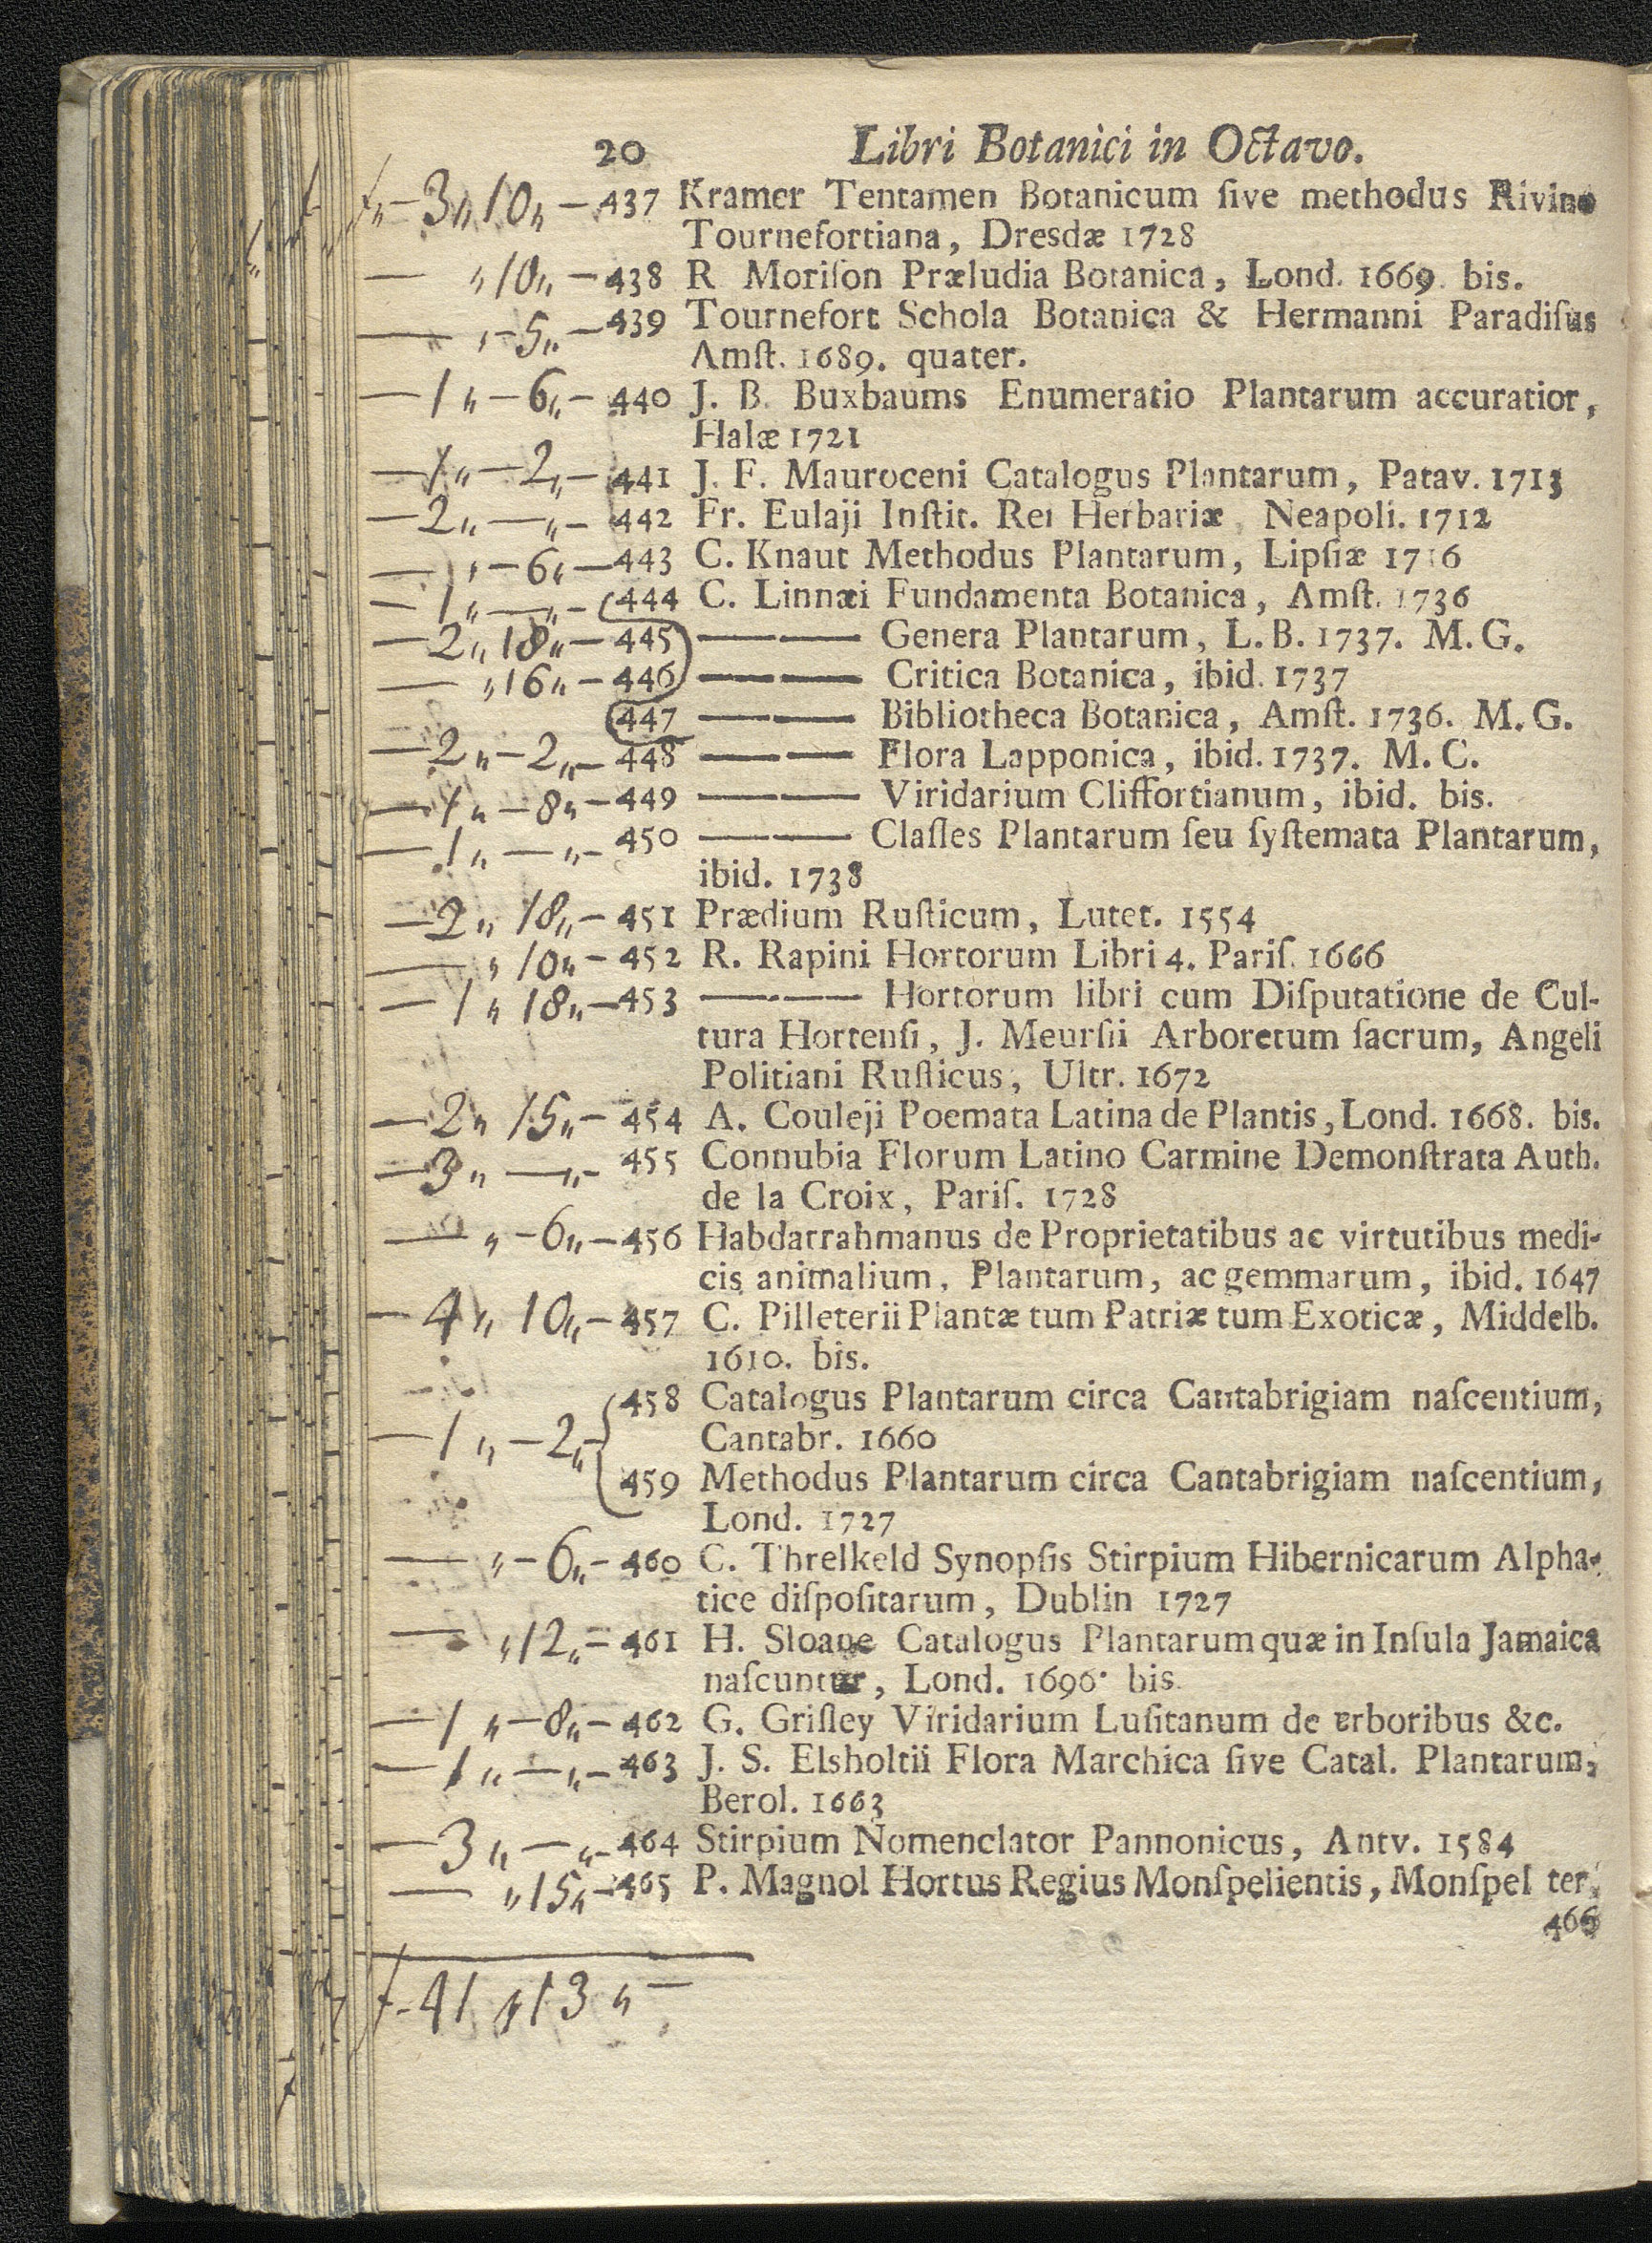 20 Libri Botanici in Octavo.
f„-3„10„-437 Kramer Tentamen Botanicum ſive methodus Rivino
Tournefortiana, Dresdæ 1728
— „10„-438 R Moriſon Præludia Botanica, Lond. 1669. bis.
— „-5„-439 Tournefort Schola Botanica & Hermanni Paradiſus
Amſt. 1689. quater.
—1„-6„-440 J. B. Buxbaums Enumeratio Plantarum accuratior,
Halæ 1721
—1„-2„-441 J. F. Mauroceni Catalogus Plantarum, Patav. 1713
—2„—„-442 Fr. Eulaji Inſtit. Rei Herbariæ, Neapoli. 1712
—1„-6„-443 C. Knaut Methodus Plantarum, Lipſiæ 1716
—1„—„-444 C. Linnæi Fundamenta Botanica, Amſt. 1736
—2„18„-445 —— —— Genera Plantarum, L. B. 1737. M. G.
— „16„-446 —— —— Critica Botanica, ibid. 1737
447 —— —— Bibliotheca Botanica, Amſt. 1736. M. G.
—2„-2„-448 —— —— Flora Lapponica, ibid. 1737. M. C.
—1„-8„-449 —— —— Viridarium Cliffortianum, ibid. bis.
—1„—„-450 —— —— Claſſes Plantarum ſeu ſyſtemata Plantarum,
ibid. 1738
—2„18„-451 Prædium Ruſticum, Lutet. 1554
— „10„-452 R. Rapini Hortorum Libri 4. Pariſ. 1666
—1„18„-453 —— —— Hortorum libri cum Diſputatione de Cul-
tura Hortenſi, J. Meurſii Arboretum ſacrum, Angeli
Politiani Ruſticus, Ultr. 1672
—2„15„-454 A. Couleji Poemata Latina de Plantis, Lond. 1668. bis.
—3„—„-455 Connubia Florum Latino Carmine Demonſtrata Auth.
de la Croix, Pariſ. 1728
— „-6„-456 Habdarrahmanus de Proprietatibus ac virtutibus medi-
cis animalium, Plantarum, ac gemmarum, ibid. 1647
—4„10„-457 C. Pilleterii Plantæ tum Patriæ tum Exoticæ, Middelb.
1610. bis.
458 Catalogus Plantarum circa Cantabrigiam naſcentium,
—1„-2„- Cantabr. 1660
459 Methodus Plantarum circa Cantabrigiam naſcentium,
Lond. 1727
— „-6„-460 C. Threlkeld Synopſis Stirpium Hibernicarum Alpha-
tice diſpoſitarum, Dublin 1727
— „12„-461 H. Sloane Catalogus Plantarum quæ in Inſula Jamaica
naſcuntur, Lond. 1696. bis.
—1„-8„-462 G. Griſley Viridarium Luſitanum de erboribus &c.
—1„—„-463 J. S. Elsholtii Flora Marchica ſive Catal. Plantarum,
Berol. 1663
—3„—„-464 Stirpium Nomenclator Pannonicus, Antv. 1584
— „15„-465 P. Magnol Hortus Regius Monſpelientis, Monſpel ter.
466
f-41„13„-